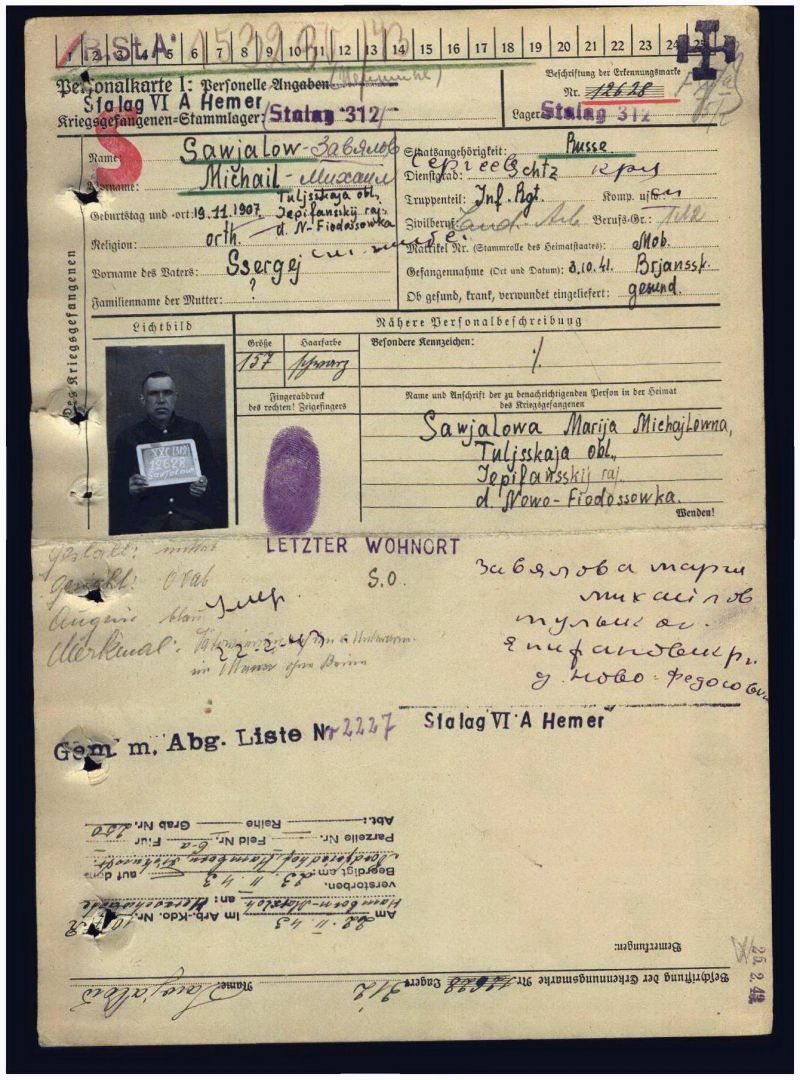 1 2 3 4 5 6 7 8 9 10 11 12 13 14 15 16 17 18 19 20 21 22 23 24 25
R.St.A.
Personalkarte I: Personelle Angaben
Stalag VI A Hemer
Kriegsgefangenen-Stammlager: Stalag 312
Beschriftung der Erkennungsmarke
Nr. 12628
Lager: Stalag 312
S
Des Kriegsgefangenen
Name: Sawjalow - Завялов
Vorname: Michail - Михаил
Geburtstag und -ort: 19.11.1907. Tuljsskaja obl., Jepifansskij raj. d. N-Fiodossowka
Religion: orth.
Vorname des Vaters: Ssergej
Familienname der Mutter: ?
Staatsangehörigkeit: Russe
Сергеев
Dienstgrad: Schtz
Truppenteil: Inf. Rgt. Komp. usw.
Zivilberuf: Land. Arb Berufs-Gr.:
Matrikel Nr. (Stammrolle des Heimatstaates): Mob.
Gefangennahme (Ort und Datum): 3.10.41. Brjanssk.
Ob gesund, krank, verwundet eingeliefert: gesund.
Lichtbild
Nähere Personalbeschreibung
Größe Haarfarbe Besondere Kennzeichen:
157 schwarz ./.
Fingerabdruck
des rechten! Zeigefingers
Name und Anschrift der zu benachrichtigenden Person in der Heimat
des Kriegsgefangenen
Sawjalowa Marija Michajlowna,
Tuljsskaja obl.,
Jepifansskij raj.
d. Nowo-Fiodossowka.
Wenden!
12628
Sawjalow
LETZTER WOHNORT
S.O.
Gestalt:
Gesicht: oval
Augen: blau
Merkmal:
умер.
22-2-43
Завялова мария
михайлов
тульск об.
епифановск р.
д. ново-федосовка
Gem. m. Abg. Liste Nr 2227
Stalag VI A Hemer
Abt.: Reihe Grab Nr. 250
Parzelle Nr. Flur Feld Nr. 6a
Beerdigt am: 23. II. 43 auf dem
verstorben.
Hamborn-Marxloh an:
Am 22. II. 43 Im Arb.-Kdo. Nr.
Bemerkungen:
25. 2. 42
Name: Sawjalow
Beschriftung der Erkennungsmarke Nr. 12628 Lager: 312